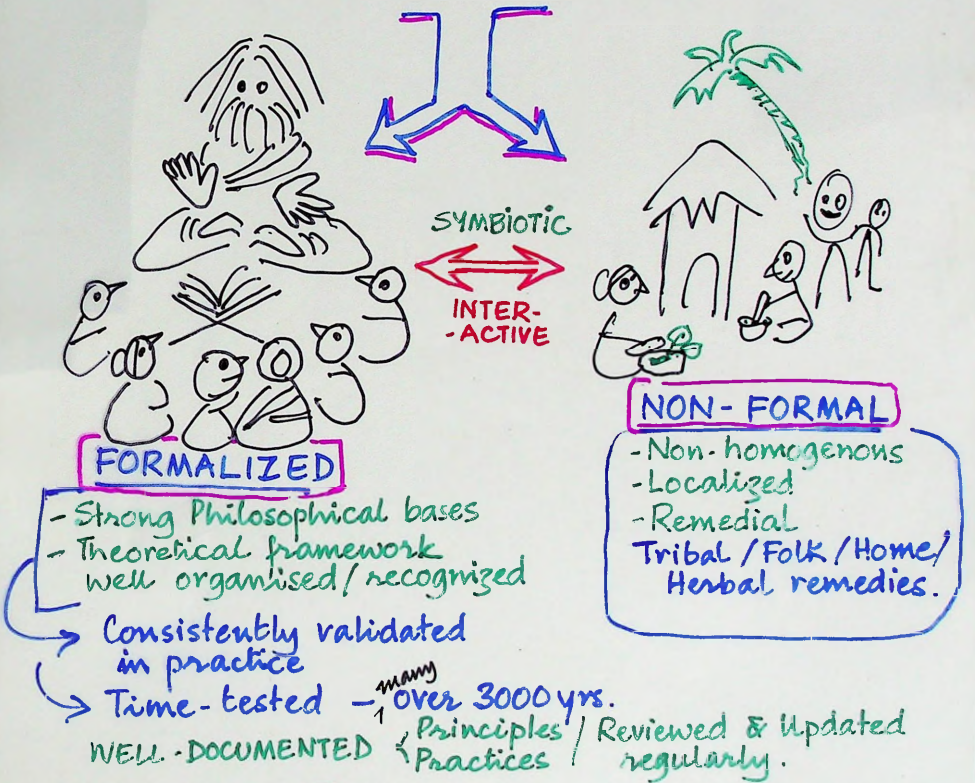 SYMBIOTIC
INTER-
-ACTIVE
FORMALIZED
- Strong Philosophical bases
- Theoretical framework
well organised/recognized
Consistently validated
in practice
Time-tested - many over 3000 yrs.
WELL-DOCUMENTED < Principles / Reviewed & Updated
Practices regularly.
NON-FORMAL
- Non-homogenous
- Localized
- Remedial
Tribal / Folk / Home /
Herbal remedies.